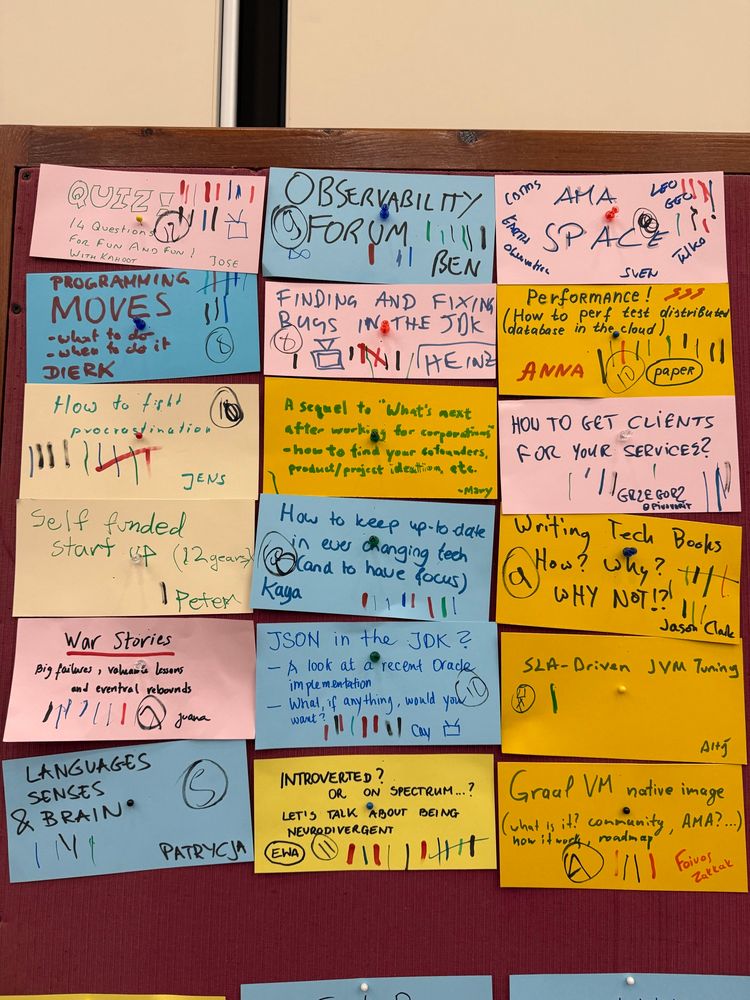 QUIZ!
14 Questions
FOR FUN AND FUN!
WITH KAHOOT
JOSE
OBSERVABILITY
FORUM
9
BEN
COMMS
EARTH
Observation
AMA
SPACE
LEO
GEO
!
SVEN
PROGRAMMING
MOVES
- what to do
- when to do it
8
DIERK
FINDING AND FIXING
BUGS IN THE JDK
8
HEINZ
Performance!
(How to perf test distributed
database in the cloud)
ANNA
10
paper
How to fight
procrastination
10
JENS
A sequel to "What's next
after working for corporations"
- how to find your cofounders,
product/project ideation, etc.
- Mary
HOW TO GET CLIENTS
FOR YOUR SERVICES?
GRZEGORZ
@pivovarit
Self funded
start up (12 years)
Peter
How to keep up-to-date
in ever changing tech
(and to have focus)
Kaya
Writing Tech Books
9
How? Why?
WHY NOT!?
Jason Clark
War Stories
Big failures, valuable lessons
and eventual rebounds
Juana
JSON in the JDK?
- A look at a recent Oracle
implementation
- What, if anything, would you
want?
10
Cay
SLA-Driven JVM Tuning
LANGUAGES
SENSES
& BRAIN
5
PATRYCJA
INTROVERTED?
OR ON SPECTRUM...?
LET'S TALK ABOUT BEING
NEURODIVERGENT
EWA
11
Graal VM native image
(what is it? community, AMA?...)
how it work, roadmap
Foivos
Zakkak